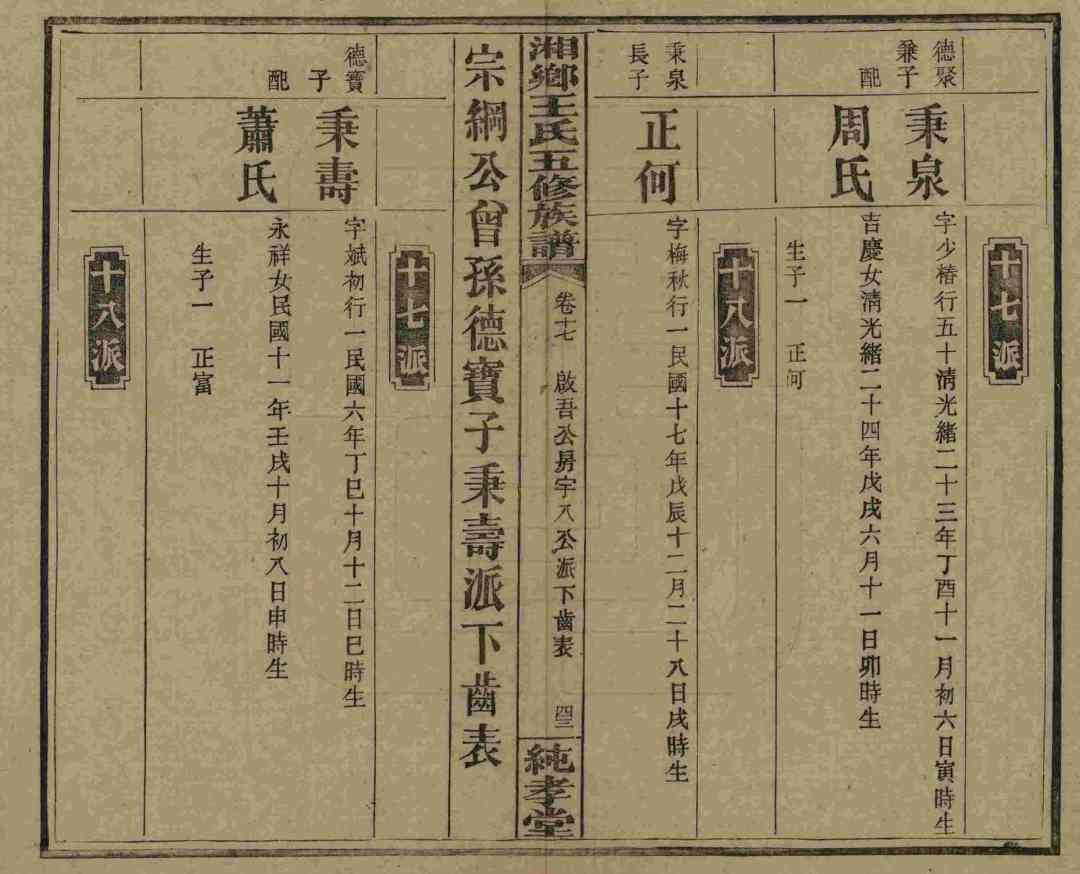 十七派
德聚
兼子
秉泉
字少椿行五十清光緒二十三年丁酉十一月初六日寅時生
配
周氏
吉慶女清光緒二十四年戊戌六月十一日卯時生
生子一　正何
十八派
秉泉
長子
正何
字梅秋行一民國十七年戊辰十二月二十八日戌時生
湘鄉王氏五修族譜
卷十七　啟吾公房宇八公派下齒表　四三
純孝堂
宗綱公曾孫德寶子秉壽派下齒表
十七派
德寶
子
秉壽
字斌初行一民國六年丁巳十月十二日巳時生
配
蕭氏
永祥女民國十一年壬戌十月初八日申時生
生子一　正富
十八派